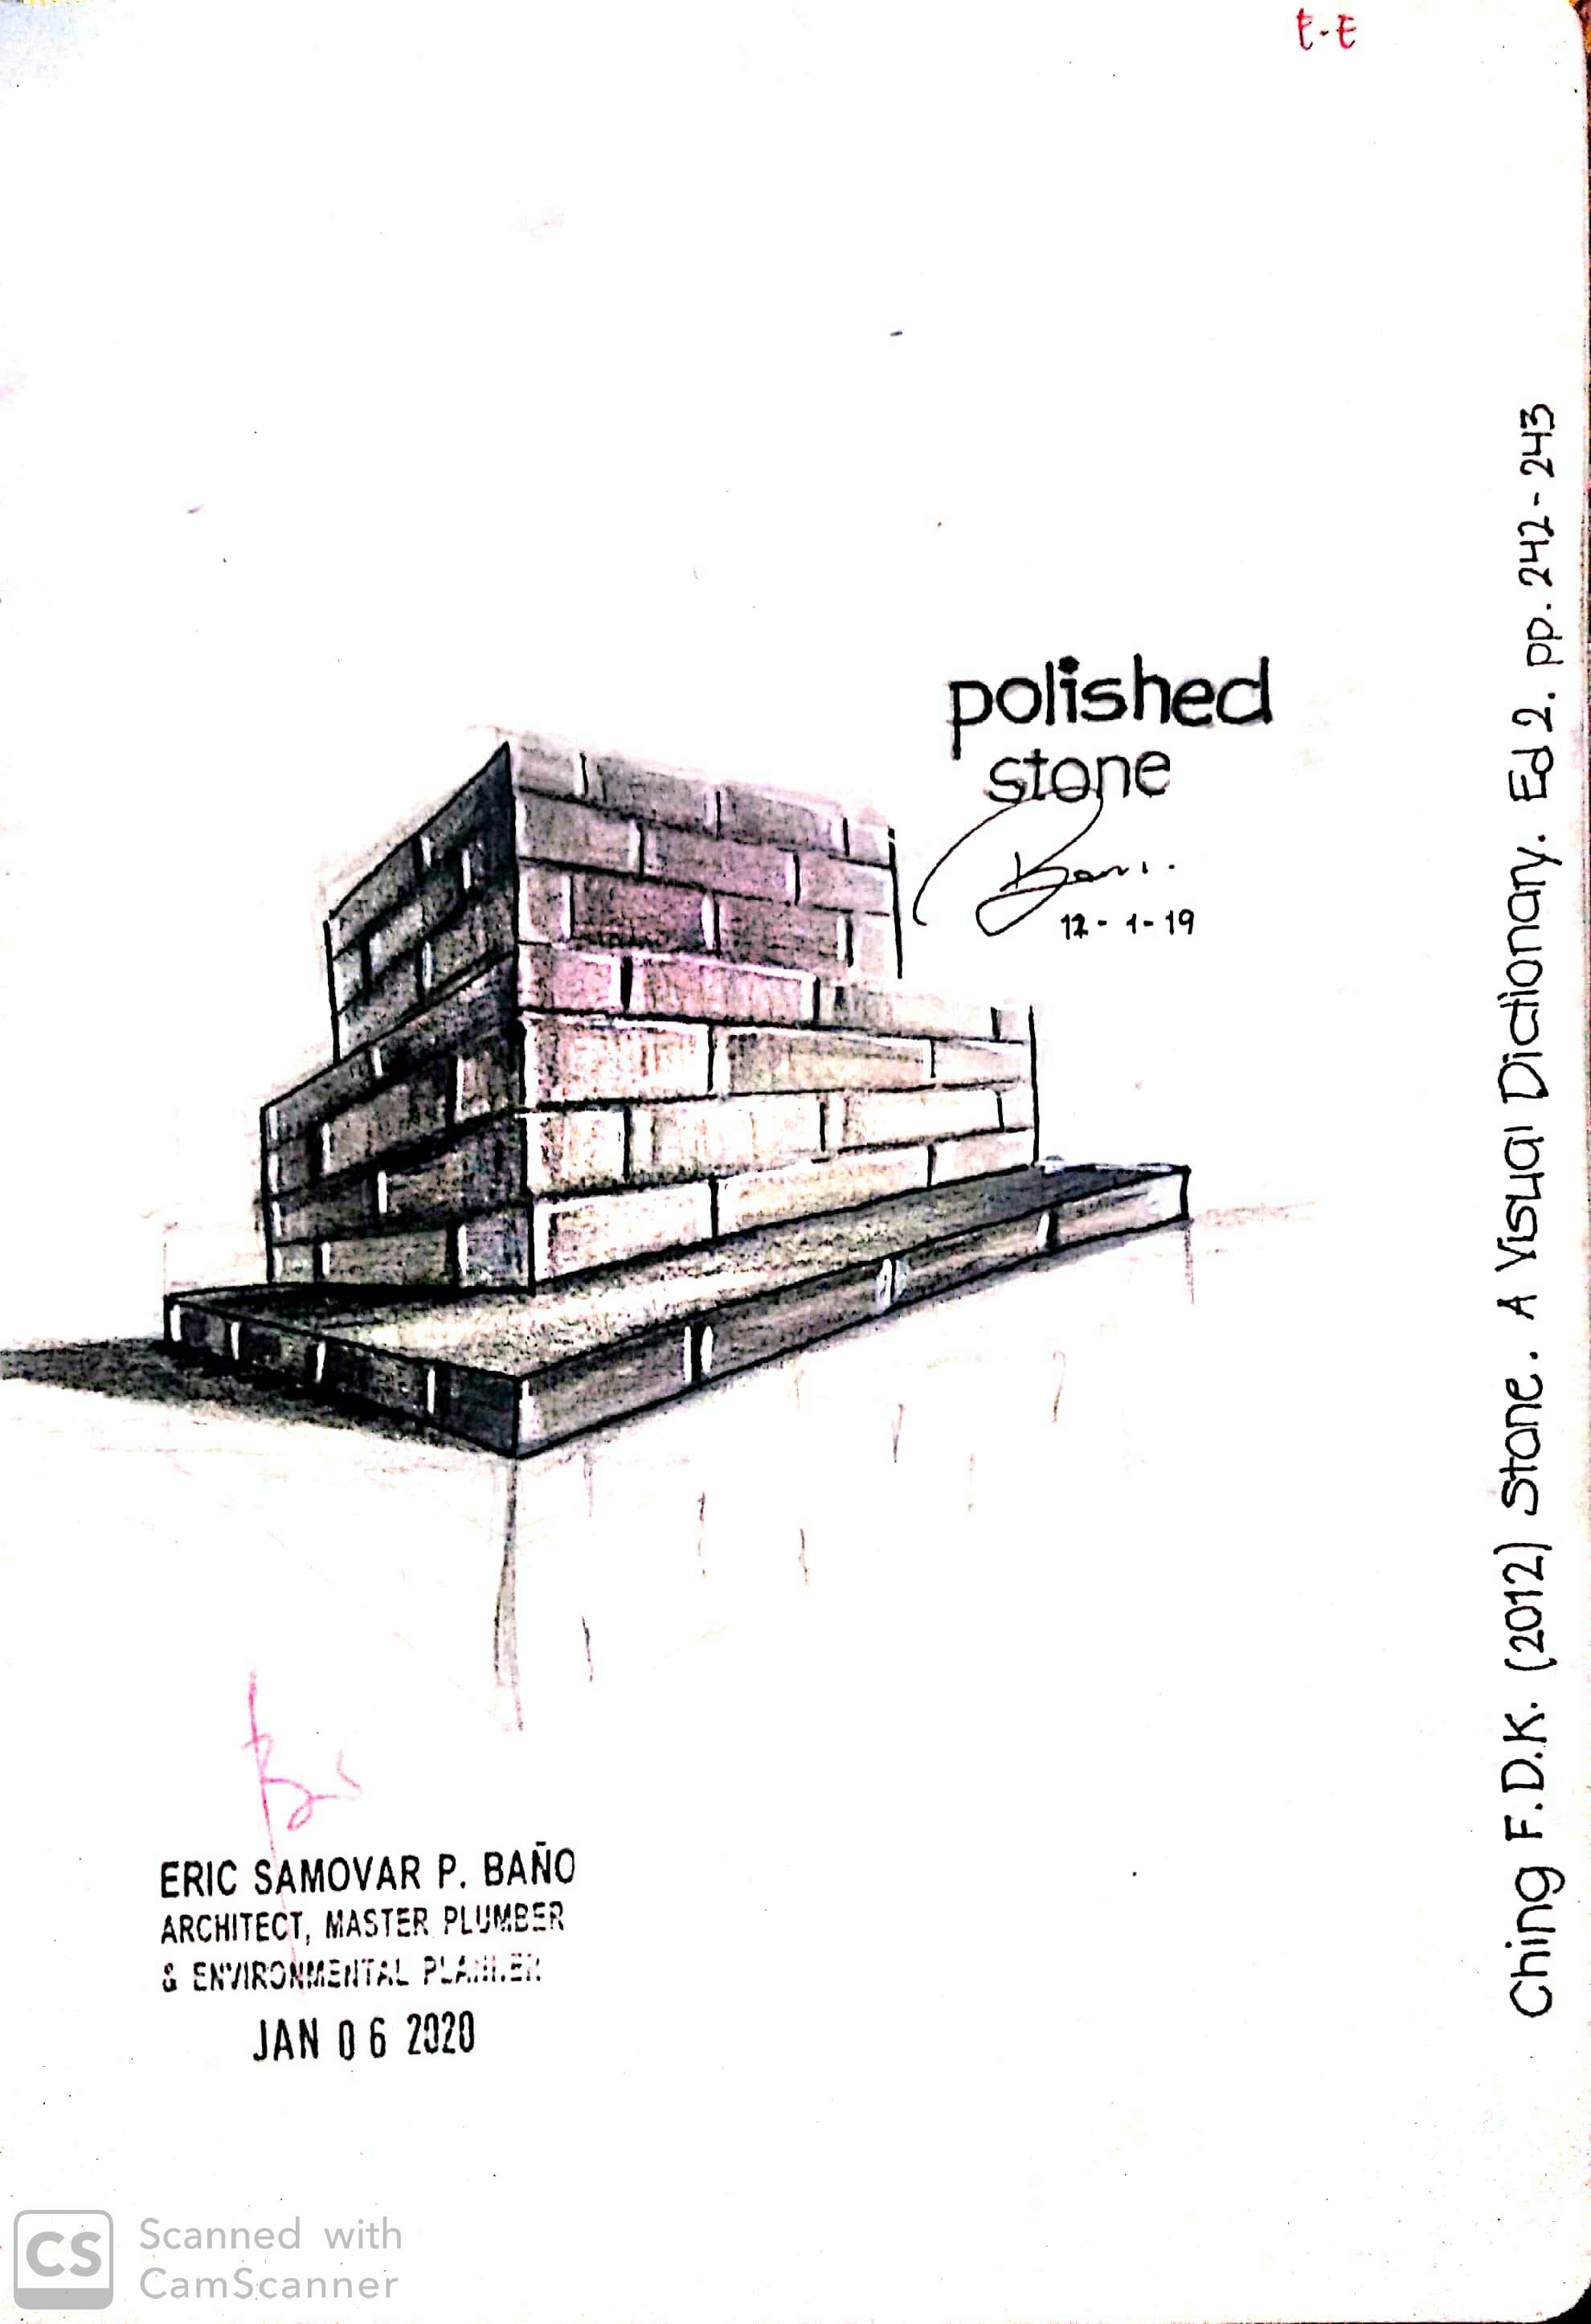 E-E
polished
stone
12-1-19
Ching F.D.K. (2012) Stone. A Visual Dictionary. Ed 2. pp. 242-243
ERIC SAMOVAR P. BAÑO
ARCHITECT, MASTER PLUMBER
& ENVIRONMENTAL PLANNER
JAN 06 2020
CS
Scanned with
CamScanner